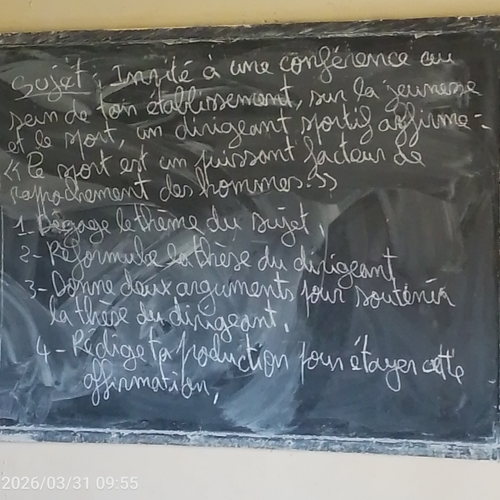 Sujet : Invité à une conférence au
sein de ton établissement, sur la jeunesse
et le sport, un dirigeant sportif affirme :
« Le sport est un puissant facteur de
rapprochement des hommes. »
1- Dégage le thème du sujet.
2- Reformule la thèse du dirigeant
3- Donne deux arguments pour soutenir
la thèse du dirigeant.
4- Rédige ta production pour étayer cette
affirmation.
2026/03/31 09:55